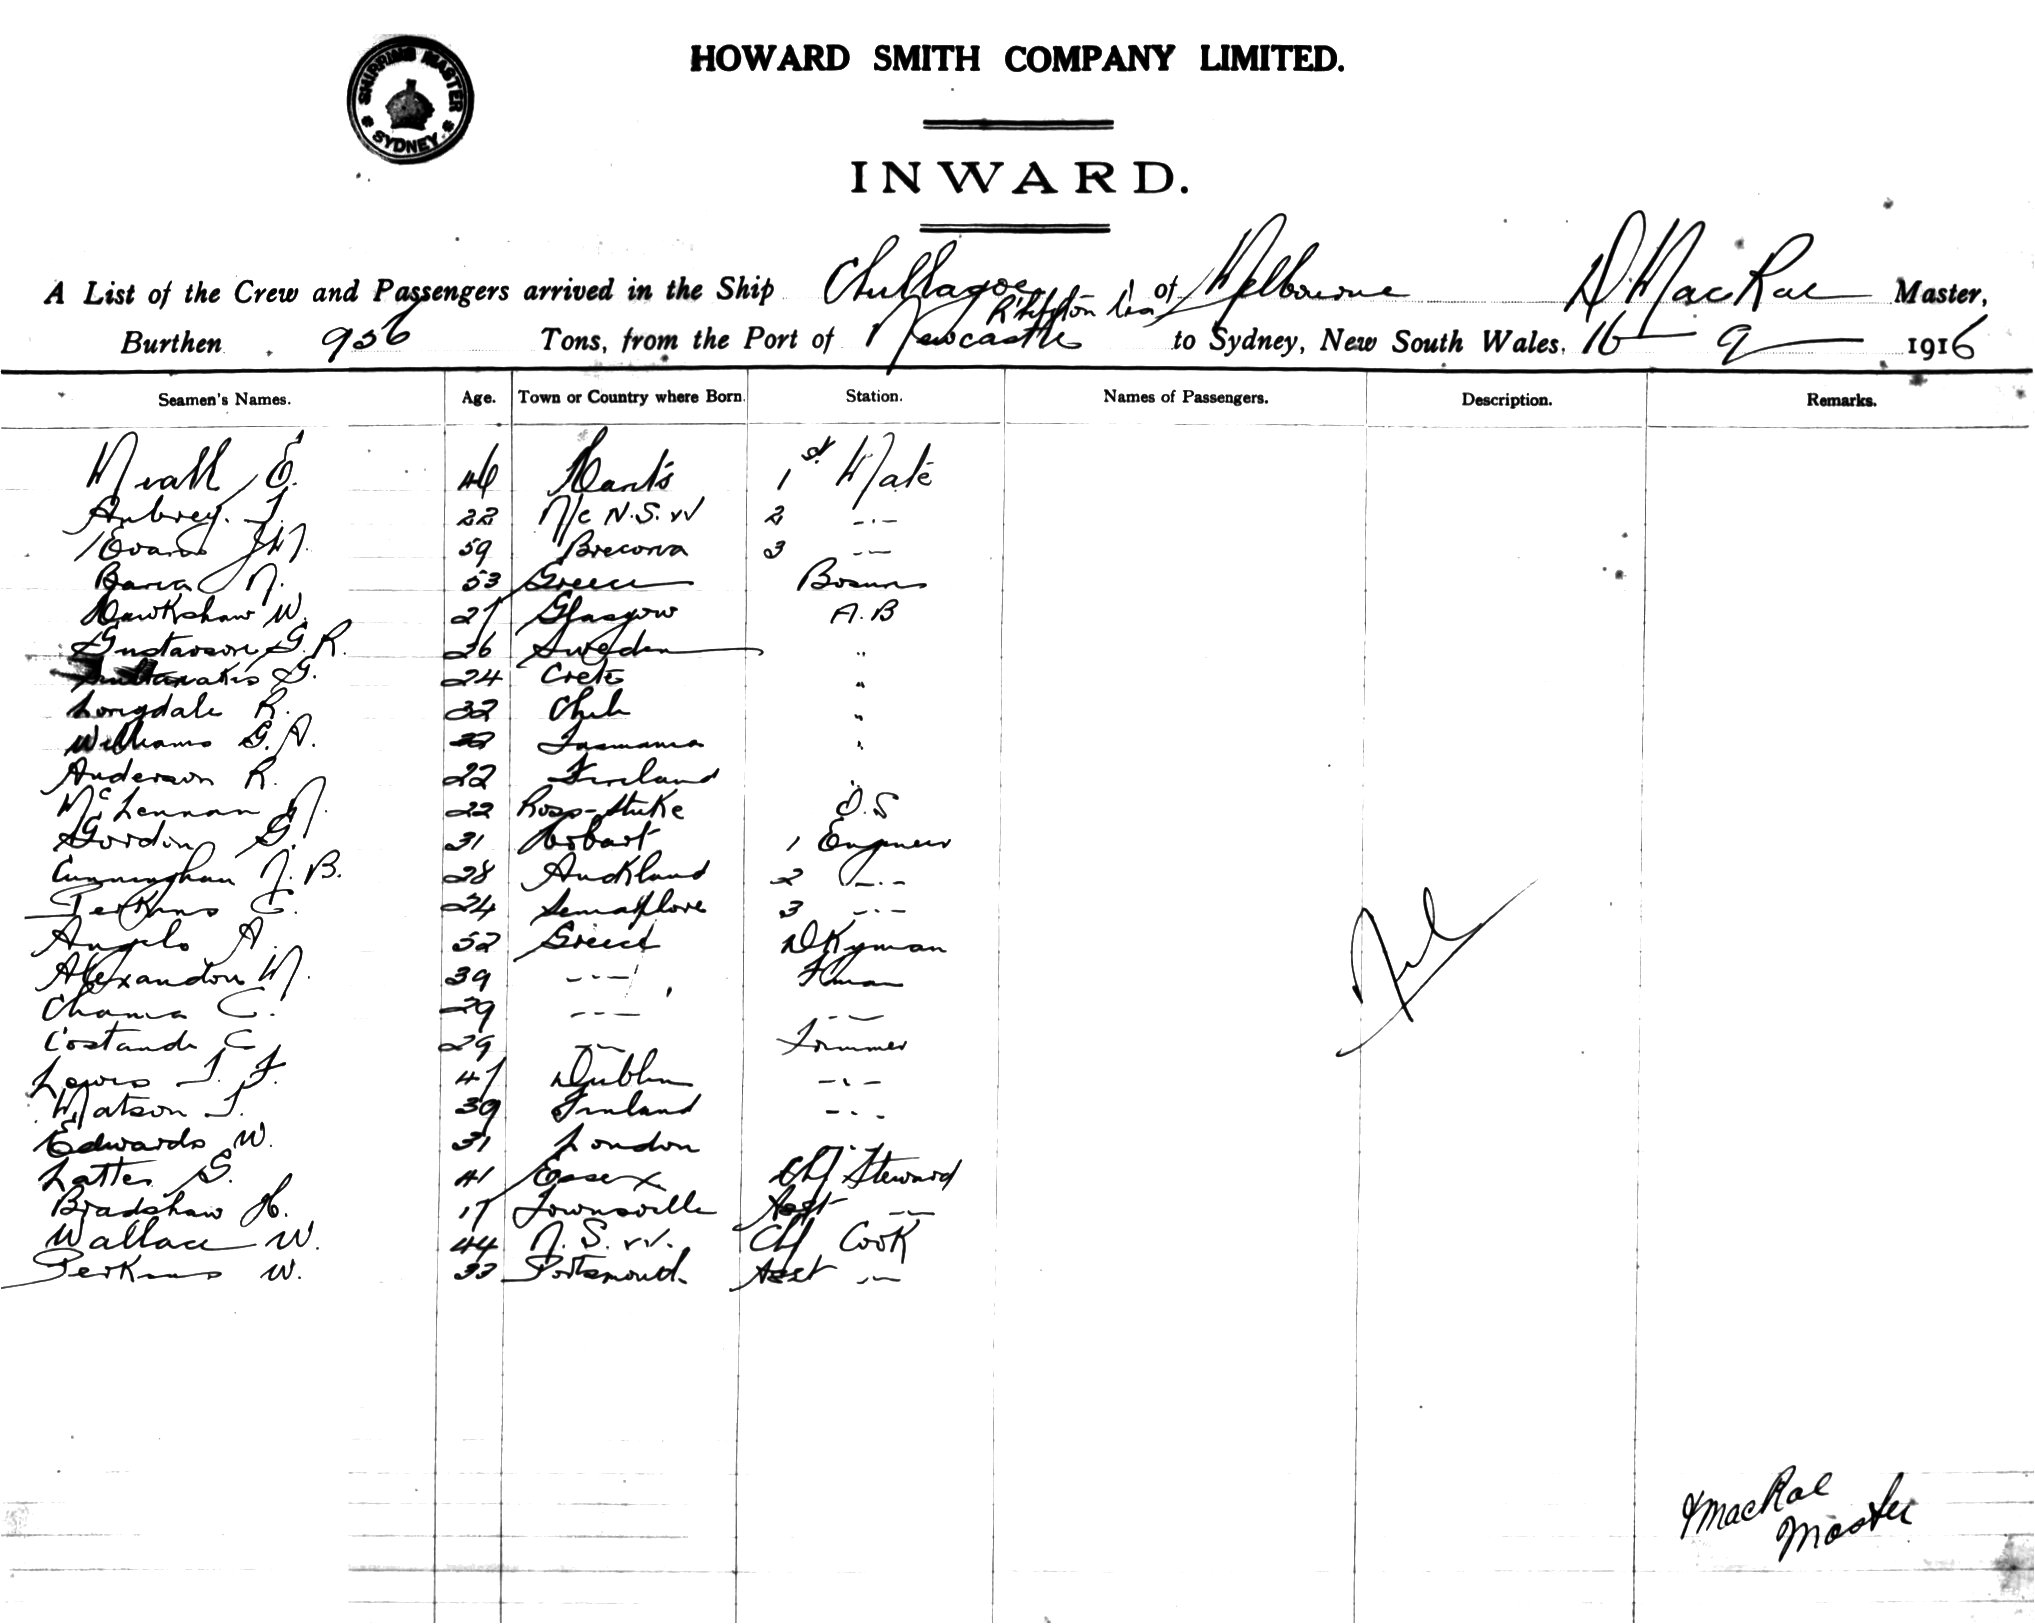 SHIPPING MASTER
SYDNEY.
HOWARD SMITH COMPANY LIMITED.
INWARD.
A List of the Crew and Passengers arrived in the Ship Chillagoe of Melbourne D MacRae Master,
Burthen 956 Tons, from the Port of Newcastle to Sydney, New South Wales. 16 9 1916
Seamen's Names. Age. Town or Country where Born. Station. Names of Passengers. Description. Remarks.
E. 46 Hants 1st Mate
Aubrey. J. 22 N/c N.S.W 2 -.-
Evans J.M. 59 Brecon 3 --
N. 53 Greece Bosun
Hawkshaw W. 27 Glasgow A.B
Gustavson G.R. 26 Sweden "
G. 24 Crete "
Longdale R. 32 Chili "
Williams G.A. Tasmania "
Anderson R. 22 Finland "
McLennan N. 22 Ross-Shire O.S
Gordon G. 31 Hobart 1 Engineer
Cunningham N.B. 28 Auckland 2 -.-
Perkins C. 24 Semaphore 3 -.-
Angelo A. 52 Greece Dkyman
M. 39 --- Fman
Chama C. 29 --- ---
C. 29 --- Trimmer
Lewis J. F. 47 Dublin -.-
Matson J. 39 Finland -.-
Edwards W. 31 London -.-
Latter S. 41 Essex Chf Steward
Bradshaw H. 17 Townsville Asst --
Wallace W. 44 N.S.W. Chf Cook
Perkins W. 33 Portsmouth Asst --
Nil
MacRae
Master